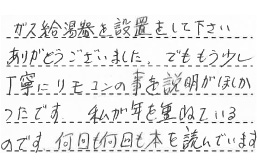 ガス給湯器を設置をして下さい
ありがどうございました。でももう少し
丁寧にリモコンの事を説明がほしか
つたです。私が年を重ねている
のです。何回も何回も本を読んでいます